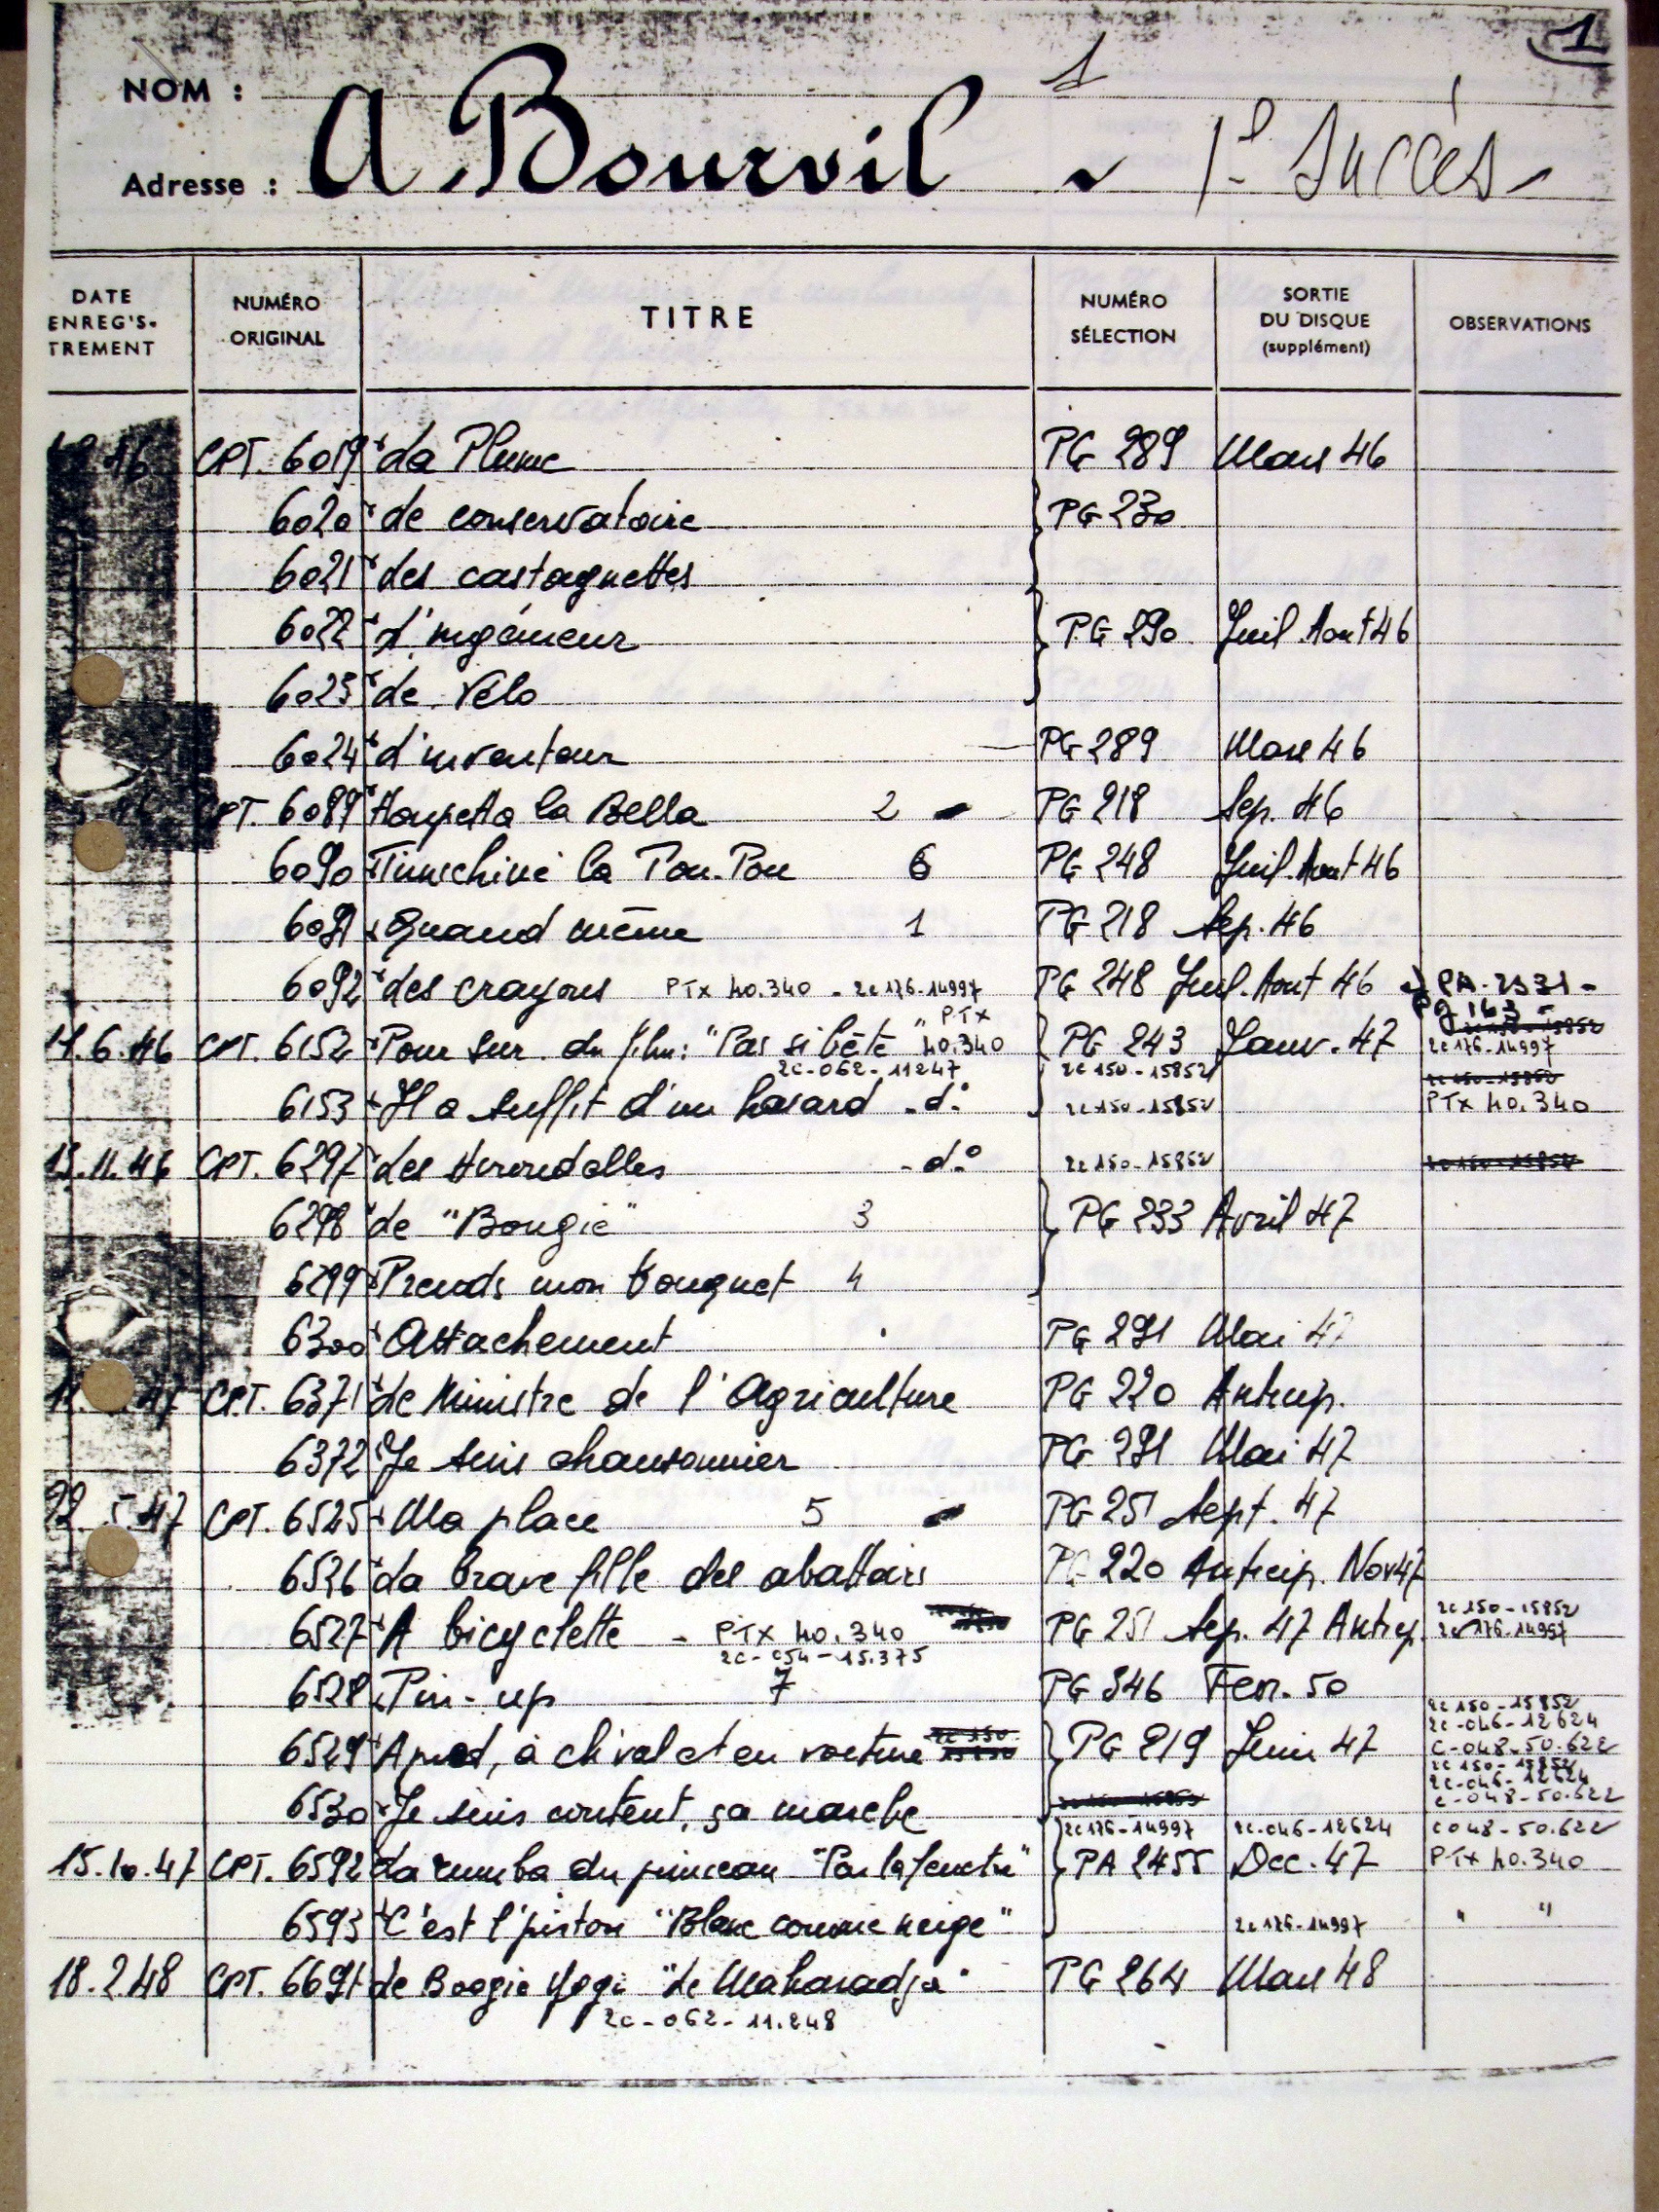 1
NOM : A Bourvil 1
Adresse : 1e Succès
DATE ENREG'S-TREMENT NUMÉRO ORIGINAL TITRE NUMÉRO SÉLECTION SORTIE DU DISQUE (supplément) OBSERVATIONS
46 CPT. 6019 La Plume PG 289 Mars 46
6020 Le conservatoire PG 230
6021 Les castagnettes
6022 L'ingénieur PG 290 Juil Aout 46
6023 Le Vélo
6024 L'inventeur PG 289 Mars 46
CPT. 6089 Houpetta la Bella 2 PG 218 Sep. 46
6090 Timichiné la Pou-Pou 6 PG 248 Juil. Aout 46
6091 Quand même 1 PG 218 Sep. 46
6092 Les crayons PTX 40.340 - 2C 176-14997 PG 248 Juil. Aout 46 PA-2331-
PG 163
PTX
6152 Pour sur. du film: "Pas si bête" 40.340 PG 243 Janv. 47 2C 176-14997
2C-062-11247 2C 150-15852
6153 Il a suffit d'un hasard - d° 2C 150-15852 PTX 40.340
15.11.46 CPT. 6297 Les Hirondelles - d° 2C 150-15852
6298 Le "Bougie" 3 PG 233 Avril 47
6299 Prends mon bouquet 4
6300 Attachement PG 291 Mai 47
47 CPT. 6371 Le Ministre de l'Agriculture PG 220 Anticip.
6372 Je suis chansonnier PG 291 Mai 47
22.5.47 CPT. 6525 Ma place 5 PG 251 Sept. 47
6526 La brave fille des abattoirs PG 220 Anticip. Nov 47
6527 A bicyclette - PTX 40.340 PG 251 Sep. 47 Anticip. 2C 150-15852
2C-054-15.375 2C 176-14997
6528 Pin-up 7 PG 346 Fevr. 50
2C 150-15852
2C-046-12624
6529 A pied, à ch'val et en voiture PG 219 Juin 47 C-048-50.622
2C 150-15852
2C-046-12624
6530 Je suis content, ça marche C-048-50.622
2C 176-14997 2C-046-12624 C 048-50.622
15.10.47 CPT. 6592 La rumba du pinceau "Par la fenetre" PA 2455 Dec. 47 PTX 40.340
6593 C'est l'piston "Blanc comme neige" 2C 176-14997 " "
18.2.48 CPT. 6691 Le Boogie Yogi "Le Maharadja" PG 264 Mars 48
2C-062-11.248